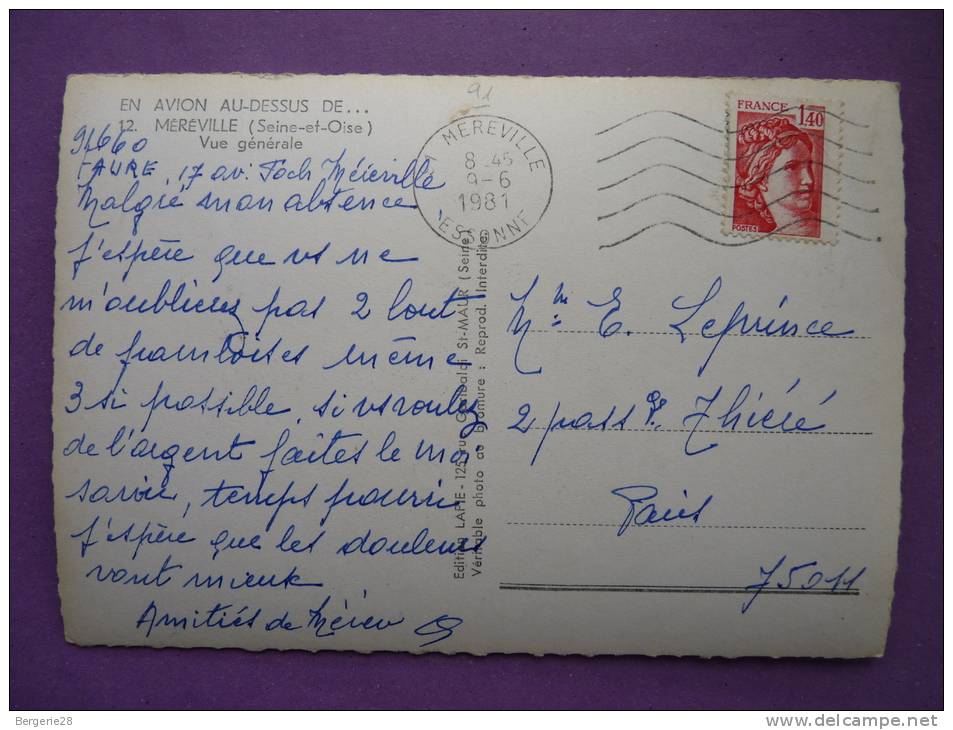 EN AVION AU-DESSUS DE...
12. MÉRÉVILLE (Seine-et-Oise)
Vue générale
91660
FAURE, 17 av. Foch, Méréville
Malgré mon absence
J'espère que vs ne
m'oublierez pas 2 bout
de framboises même
3 si possible, si vs voulez
de l'argent faites le moi
savoir, temps pourri
J'espère que les douleurs
vont mieux
Amitiés de Mérév
91
MEREVILLE
8 45
9-6
1981
ESSONNE
FRANCE 1,40
POSTES
Edition LAPIE - 125, rue Garibaldi St-MAUR (Seine)
Véritable photo au bromure : Reprod. Interdite
E. Leprince
2 passge Thiéré
Paris
75011
Bergerie28
delcampe.net